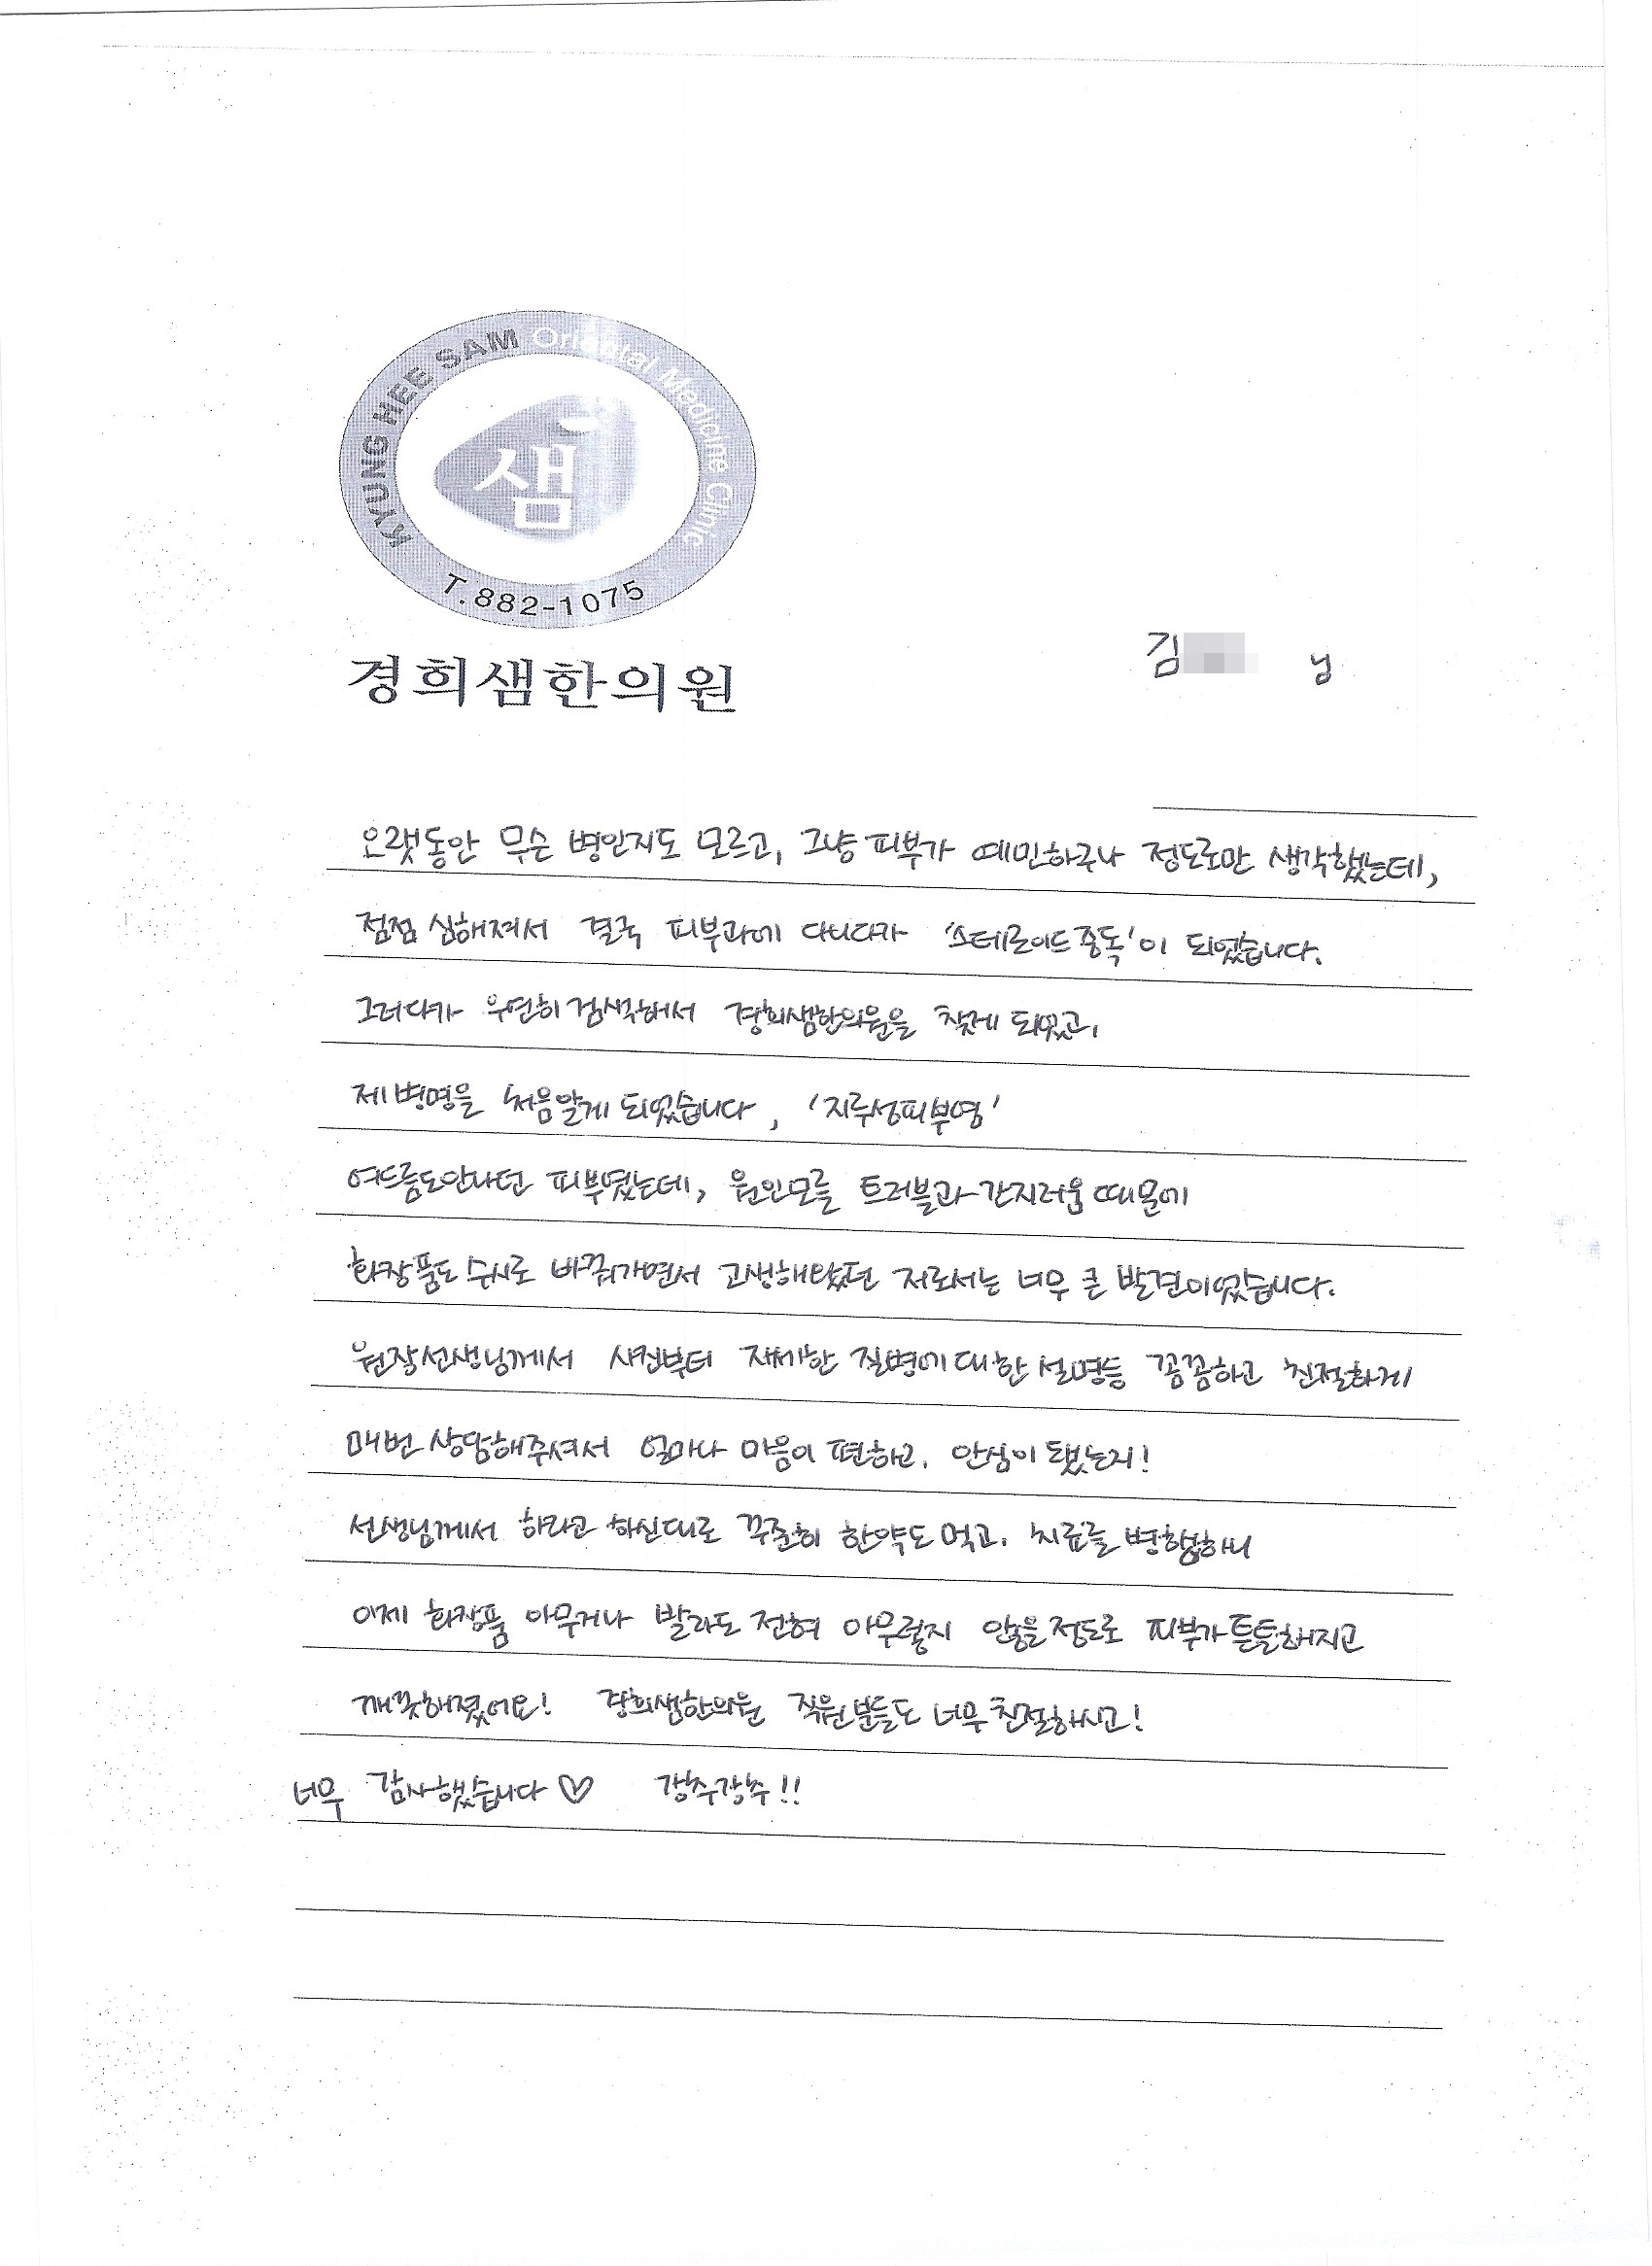 KYUNG HEE SAM Oriental Medicine Clinic
샘
T.882-1075
경희샘한의원
김 님
오랫동안 무슨 병인지도 모르고, 그냥 피부가 예민하구나 정도로만 생각했는데,
점점 심해져서 결국 피부과에 다니다가 '스테로이드 중독'이 되었습니다.
그러다가 우연히 검색해서 경희샘한의원을 찾게 되었고,
제 병명을 처음알게 되었습니다, '지루성피부염'
여드름도안나던 피부였는데, 원인모를 트러블과 간지러움 때문에
화장품도 수시로 바꿔가면서 고생해왔던 저로서는 너무 큰 발견이었습니다.
원장선생님께서 사진부터 자세한 질병에 대한 설명등 꼼꼼하고 친절하게
매번 상담해주셔서 얼마나 마음이 편하고, 안심이 됐는지!
선생님께서 하라고 하신대로 꾸준히 한약도 먹고, 치료를 병행하니
이제 화장품 아무거나 발라도 전혀 아무렇지 않을정도로 피부가 튼튼해지고
깨끗해졌어요! 경희샘한의원 직원분들도 너무 친절하시고!
너무 감사했습니다♡ 강추강추!!